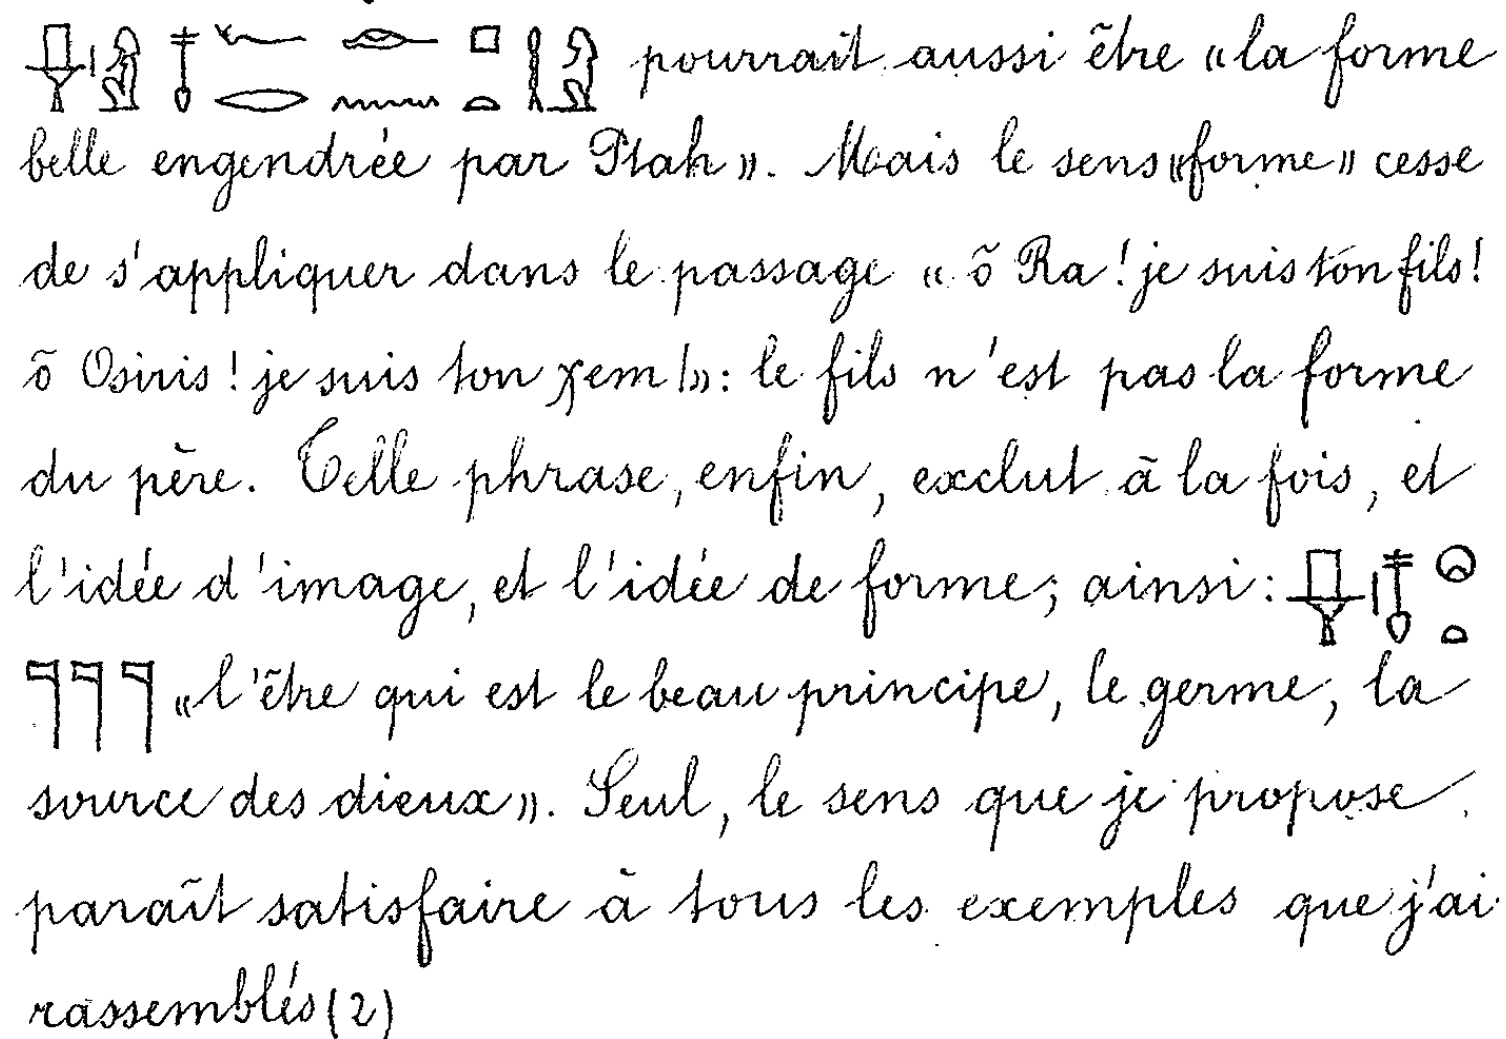 pourrait aussi être «la forme
belle engendrée par Ptah». Mais le sens «forme» cesse
de s'appliquer dans le passage «ô Ra! je suis ton fils!
ô Osiris! je suis ton χem!»: le fils n'est pas la forme
du père. Telle phrase, enfin, exclut à la fois, et
l'idée d'image, et l'idée de forme; ainsi:
«l'être qui est le beau principe, le germe, la
source des dieux». Seul, le sens que je propose
paraît satisfaire à tous les exemples que j'ai
rassemblés (2)